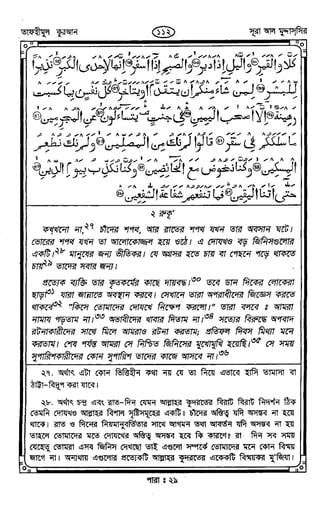 তাফহীমুল কুরআন
১১২
সূরা আল মুদ্দাস্সির
كَلَّا وَالْقَمَرِ ۞ وَالَّيْلِ إِذْ أَدْبَرَ ۞ وَالصُّبْحِ إِذَا أَسْفَرَ ۞ إِنَّهَا لَإِحْدَى الْكُبَرِ ۞ نَذِيرًا
لِّلْبَشَرِ ۞ لِمَن شَاءَ مِنكُمْ أَن يَتَقَدَّمَ أَوْ يَتَأَخَّرَ ۞ كُلُّ نَفْسٍ بِمَا كَسَبَتْ
رَهِينَةٌ ۞ إِلَّا أَصْحَابَ الْيَمِينِ ۞ فِي جَنَّاتٍ يَتَسَاءَلُونَ ۞ عَنِ الْمُجْرِمِينَ ۞
مَا سَلَكَكُمْ فِي سَقَرَ ۞ قَالُوا لَمْ نَكُ مِنَ الْمُصَلِّينَ ۞ وَلَمْ نَكُ نُطْعِمُ
الْمِسْكِينَ ۞ وَكُنَّا نَخُوضُ مَعَ الْخَائِضِينَ ۞ وَكُنَّا نُكَذِّبُ بِيَوْمِ الدِّينِ ۞
حَتَّى أَتَانَا الْيَقِينُ ۞ فَمَا تَنفَعُهُمْ شَفَاعَةُ الشَّافِعِينَ ۞
২ রুকূ'
কখ্খনো না,২৭ চাঁদের শপথ, আর রাতের শপথ যখন তার অবসান ঘটে।
ভোরের শপথ যখন তা আলোকোজ্জল হয়ে ওঠে। এ দোযখও বড় জিনিসগুলোর
একটি।২৮ মানুষের জন্য ভীতিকর। যে অগ্রসর হতে চায় বা পেছনে পড়ে থাকতে
চায়২৯ তাদের সবার জন্য।
প্রত্যেক ব্যক্তি তার কৃতকর্মের কাছে দায়বদ্ধ।৩০ তবে ডান দিকের লোকেরা
ছাড়া৩১ যারা জান্নাতে অবস্থান করবে। সেখানে তারা অপরাধীদের জিজ্ঞেস করতে
থাকবে৩২ "কিসে তোমাদের দোযখে নিক্ষেপ করলো।" তারা বলবে ঃ আমরা
নামায পড়তাম না।৩৩ অভাবীদের খাবার দিতাম না।৩৪ সত্যের বিরুদ্ধে অপবাদ
রটনাকারীদের সাথে মিলে আমরাও রটনা করতাম; প্রতিফল দিবস মিথ্যা মনে
করতাম। শেষ পর্যন্ত আমরা সে নিশ্চিত জিনিসের মুখোমুখি হয়েছি।৩৫ সে সময়
সুপারিশকারীদের কোন সুপারিশ তাদের কাজে আসবে না।৩৬
২৭. অর্থাৎ এটা কোন ভিত্তিহীন কথা নয় যে তা নিয়ে এভাবে হাসি তামাসা বা
ঠাট্টা-বিদ্রূপ করা যাবে।
২৮. অর্থাৎ চন্দ্র এবং রাত-দিন যেমন আল্লাহর কুদরতের বিরাট বিরাট নিদর্শন ঠিক
তেমনি দোযখও আল্লাহর বিশাল সৃষ্টিসমূহের একটি। চাঁদের অস্তিত্ব যদি অসম্ভব না হয়ে
থাকে। রাত ও দিনের নিয়মানুবর্তিতার সাথে আগমন তথা আবর্তন যদি অসম্ভব না হয়
তাহলে তোমাদের মতে দোযখের অস্তিত্ব অসম্ভব হবে কি কারণে? রাত দিন সব সময়
যেহেতু তোমরা এসব জিনিস দেখছো তাই এগুলো সম্পর্কে তোমাদের মনে কোন বিস্ময়
জাগে না। অন্যথায় এগুলোর প্রত্যেকটি আল্লাহর কুদরতের একেকটি বিস্ময়কর মু'জিযা।
পারা ঃ ২৯